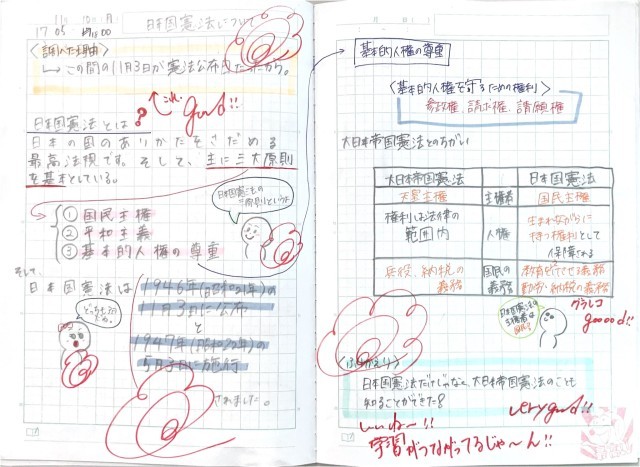 11 10 月
日本国憲法について
17:05
〈調べた理由〉
→この間の11月3日が憲法公布日だったから。
これ good!!
日本国憲法とは?
日本の国のありかたをさだめる
最高法規です。そして、主に三大原則
を基本としている。
① 国民主権
② 平和主義
③ 基本的人権の尊重
そして、
日本国憲法は
1946年(昭和21年)の
11月3日に公布
と
1947年(昭和22年)の
5月3日に施行
されました。
基本的人権の尊重
〈基本的人権を守るための権利〉
参政権、請求権、請願権
大日本帝国憲法とのちがい
大日本帝国憲法 日本国憲法
天皇主権 主権者 国民主権
権利は法律の 人権 生まれながらに
範囲内 持つ権利として
保障される
兵役、納税の 国民の 教育を受けさせる義務
義務 義務 勤労・納税の義務
グラレコ
goood!!
〈ふりかえり〉
日本国憲法だけじゃなく、大日本帝国憲法のことも
知ることができた!
いいね~!! very good!!
学習がつながってるじゃ~ん!!